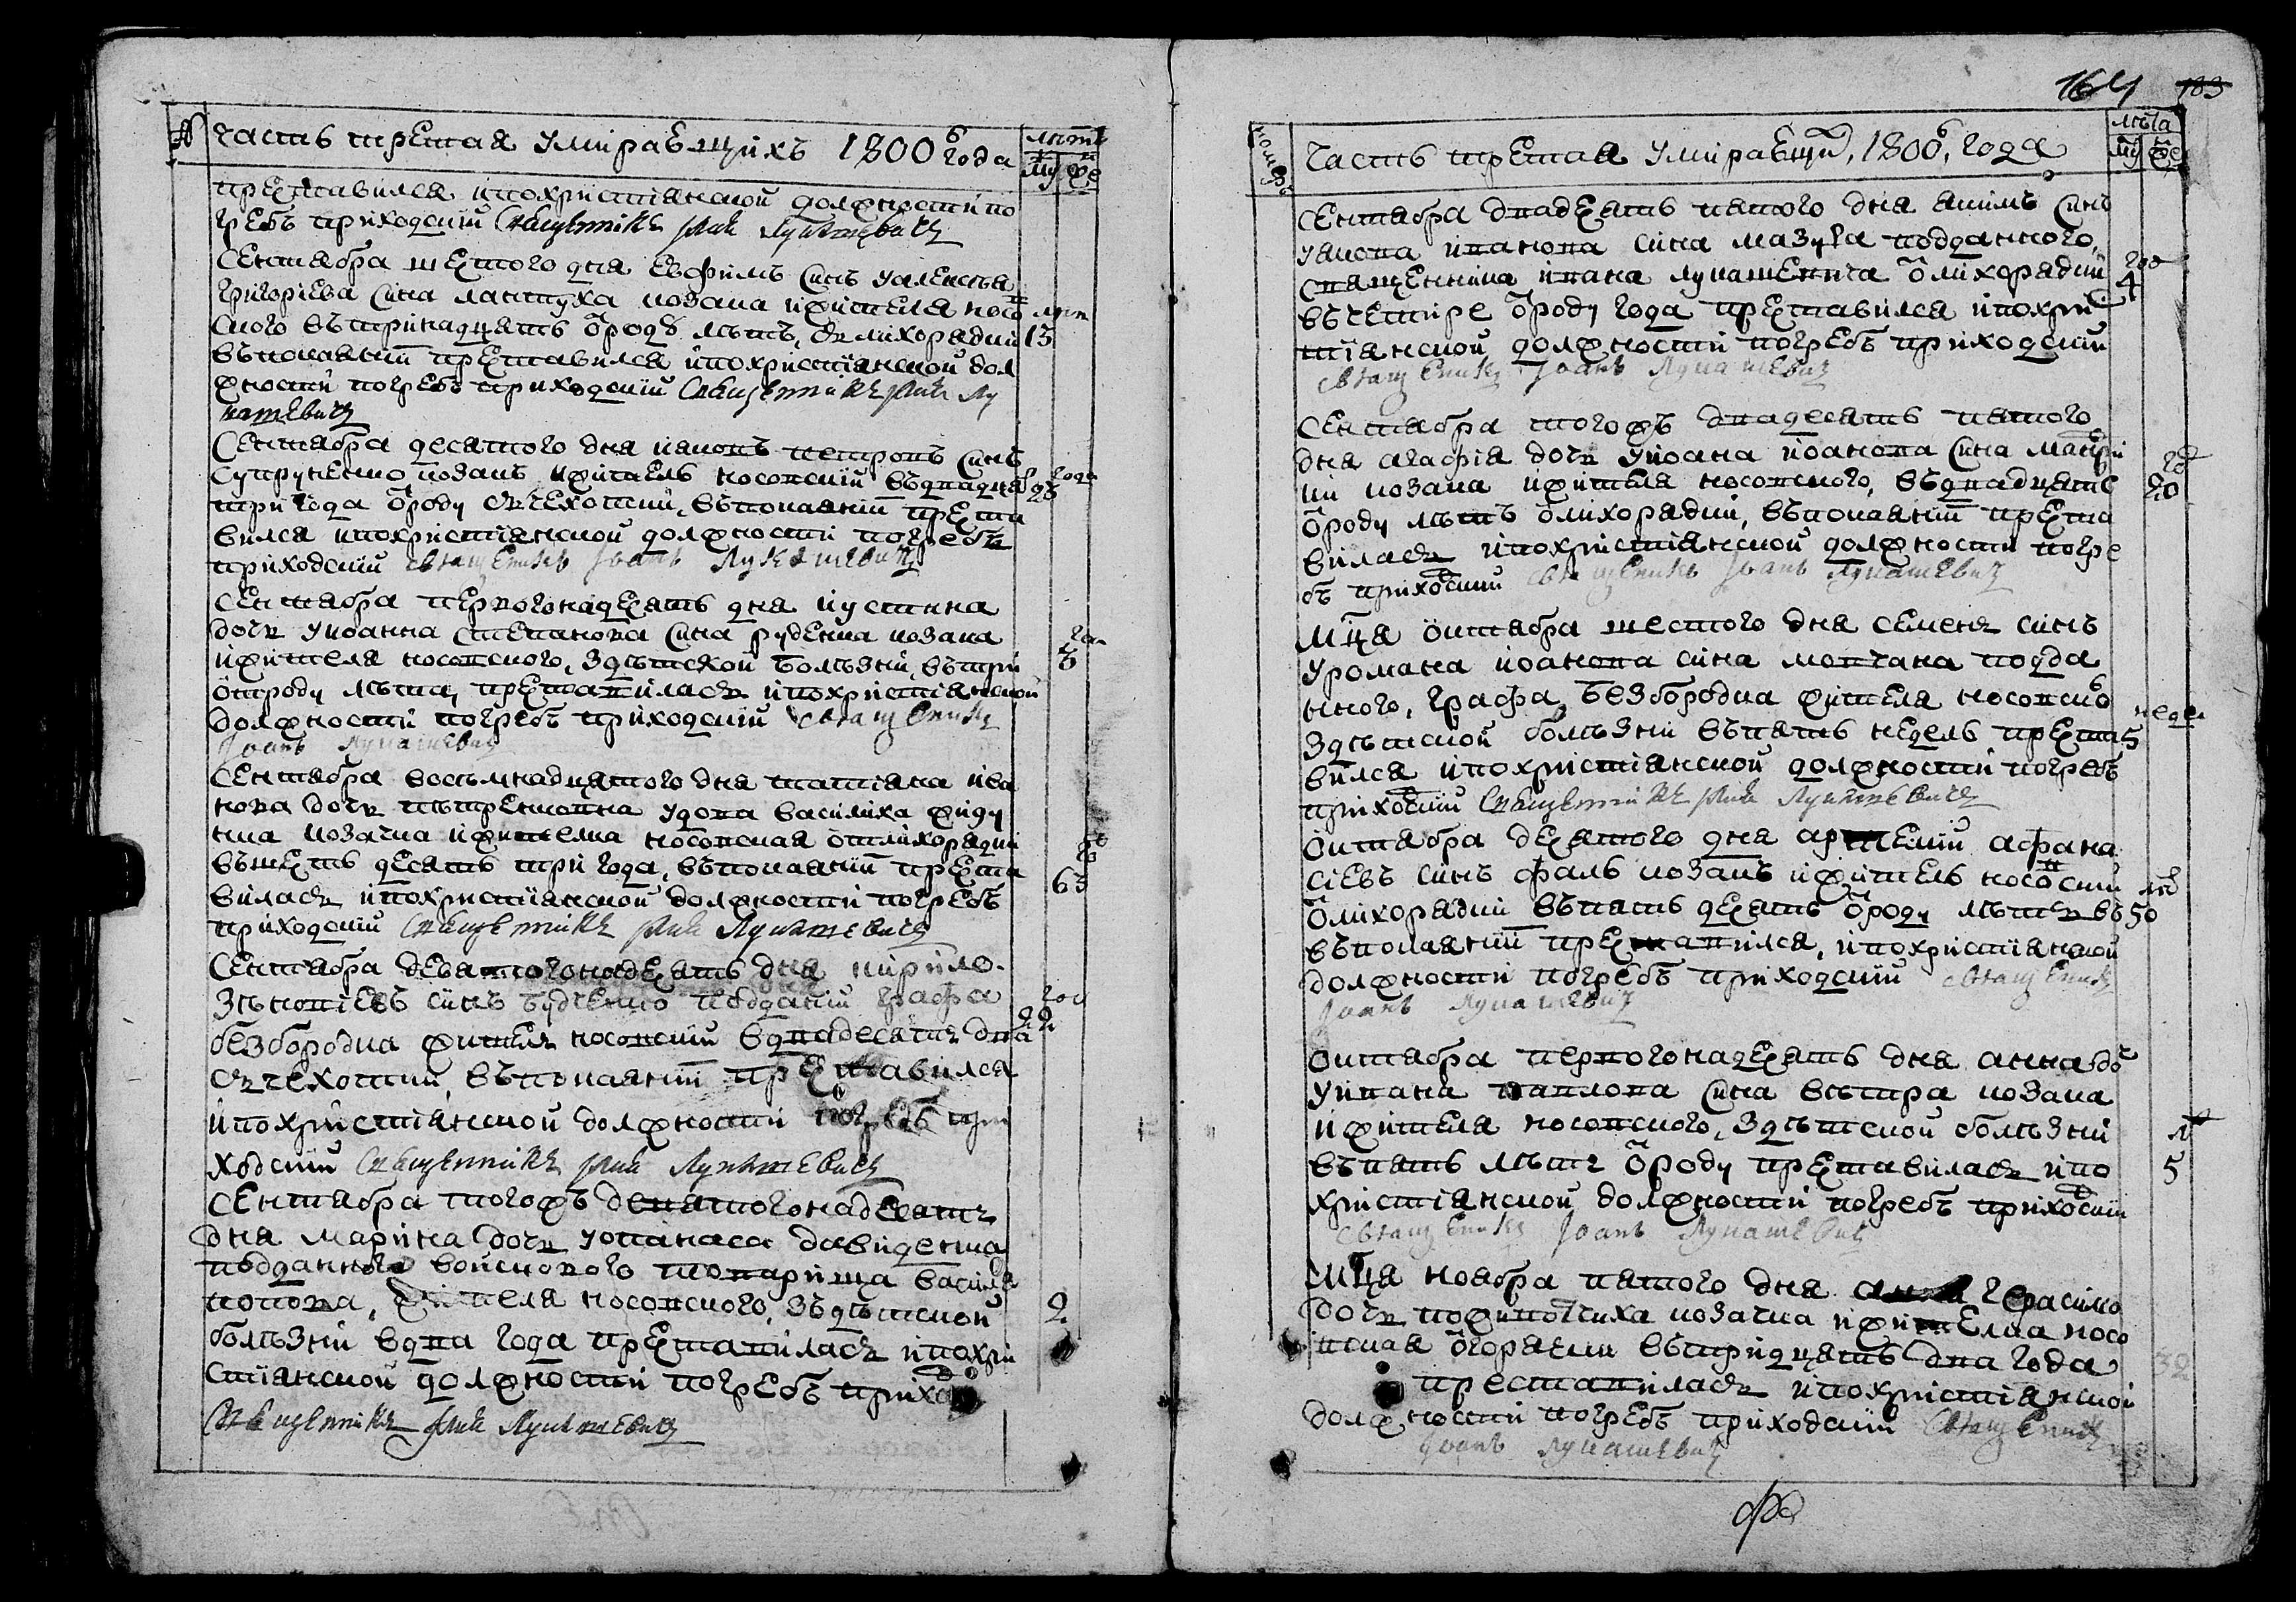 № часть третая умиравщихъ 1806 года лѣтъ
му же
преставился ипохристіанской должности по
гребъ приходскій Священникъ Іоанъ Лукашевичъ
Сентабра шестого дня Евфимъ синъ
Григоріева сина козака ижителя носов лѣт
ского вътринадцять ѿроду лѣтъ, ѿлихорадки 13
въпокаяніи преставился ипохристіанской дол
жности погребъ приходскій Священникъ Іоанъ Лу
кашевичъ
Сентабра десятого дня петровъ синъ
Супруненко козакъ ижитель носовскій въдвадця года
три года ѿроду съчехотки, въпокаяніи преста 23
вился ипохристіанской должности погребъ
приходскій священикъ Іоанъ Лукашевичъ
Сентабра первогонадесять дня иустина
дочъ уиоанна степанова сина руденка козака
ижителя носовского, здѣтской болѣзни, вътри 3
ѿтроду лѣта, преставиласъ ипохристіанской
должности погребъ приходскій священикъ
Іоанъ Лукашевичъ
Сентабра восъмнадцятого дня татіана ива
нова дочъ пѣтренковна удова василиха жиду
кка козачка ижителка носовская ѿтлихорадки
въшесть десять три года, въпокаяніи преста 63
виласъ ипохристіанской должности погребъ
приходскій Священникъ Іоанъ Лукашевичъ
Сентабра девятогонадесять дня кирило
зѣновіевъ синъ будченко подданій графа год
безбородка житель носовскій вдвадесять два 22
съчехотки, въпокаяніи преставился
ипохристіанской должности погребъ при
ходскій Священникъ Іоанъ Лукашевичъ
Сентабра тогожъ девятогонадесять
дня марина дочъ уопанаса давиденка
подданного воискового товариша василя
попова, жителя носовского, зъдѣтской 2
болѣзни вдва года преставиласъ ипохри
стіанской должности погребъ прихо
Священникъ Іоанъ Лукашевичъ
164 183
номеръ Часть третая умиравщи, 1806, года лѣта
му же
Сентабра двадесять пятого дня якимъ синъ
уякова иванова сина мазура подданного,
священника ивана лукашевича ѿлихорадки год
въчетире ѿроду года преставился ипохри 4
стіанской должности погребъ приходскій
священикъ Іоанъ Лукашевичъ
Сентабра тогожъ двадесять пятого
дня агафія дочъ укоана иоанова сина
ки козака ижителя носовского, въдвадцять 20
ѿроду лѣтъ ѿлихорадки, въпокаяніи преста
виласъ ипохристіанской должности погре
бъ приходскій священикъ Іоанъ Лукашевичъ
Мца октабра шестого дня семенъ синъ
уромана иоанова сина мовчана подда
нного, графа, безбородка жителя носовско
здѣтской болѣзни въпять недель преста недел 5
вился ипохристіанской должности погребъ
приходскій Священникъ Іоанъ Лукашевичъ
Октабра десятого дня артемій афана
сіевъ синъ фаль козакъ ижитель носовскій лѣт
ѿлихорадки въпять десять ѿроду лѣтъ въ 50
въпокаяніи преставился, ипохристіанской
должности погребъ приходскій священикъ
Іоанъ Лукашевичъ
Октабра первогонадесять дня анна до
уивана павлова сина вѣтра козака
ижителя носовского, здѣтской болѣзни
въпять лѣтъ ѿроду преставиласъ ипо 5
христіанской должности погребъ приходскій
священикъ Іоанъ Лукашевичъ
Мца ноабра пятого дня герасимо
дочъ козачка ижителка носо
вская ѿгорячки вътридцять два года 32
преставиласъ ипохристіанской
должности погребъ приходскій священикъ
Іоанъ Лукашевичъ